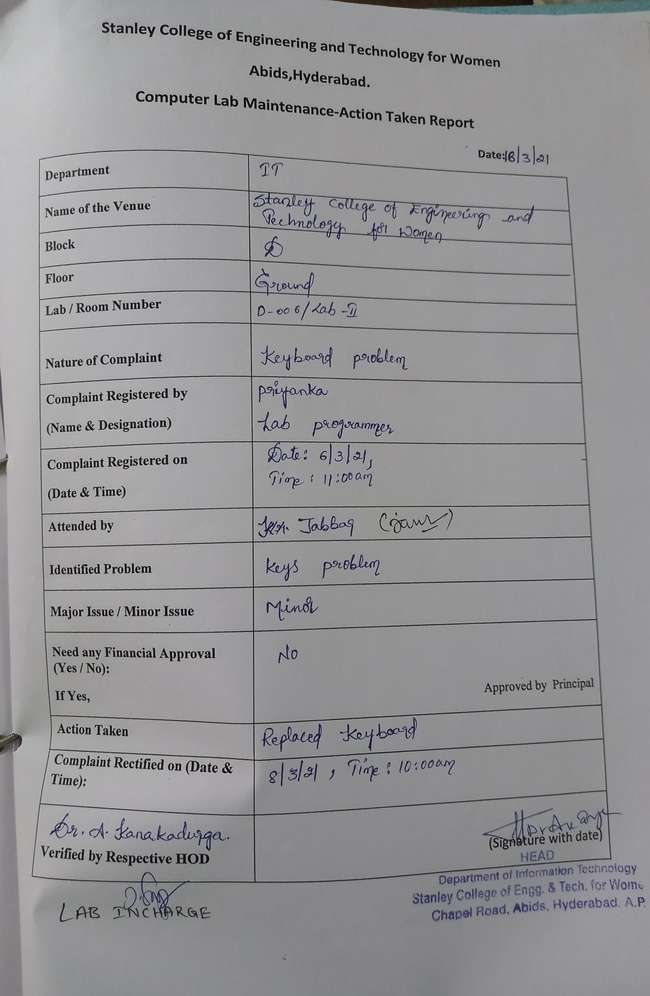 Stanley College of Engineering and Technology for Women
Abids,Hyderabad.
Computer Lab Maintenance-Action Taken Report
Date:18/3/21
Department IT
Name of the Venue Stanley College of Engineering and
Technology for Women
Block D
Floor Ground
Lab / Room Number D-006/Lab-II
Nature of Complaint Keyboard problem
Complaint Registered by Priyanka
(Name & Designation) Lab programmer
Complaint Registered on Date: 6/3/21,
(Date & Time) Time: 11:00am
Attended by Jabbar
Identified Problem Keys problem
Major Issue / Minor Issue Minor
Need any Financial Approval No
(Yes / No):
If Yes, Approved by Principal
Action Taken Replaced Keyboard
Complaint Rectified on (Date & 8/3/21, Time: 10:00am
Time):
Dr. A. Kanakadurga.
Verified by Respective HOD (Signature with date)
HEAD
Department of Information Technology
Stanley College of Engg. & Tech. for Wome
Chapel Road, Abids, Hyderabad. A.P.
LAB INCHARGE